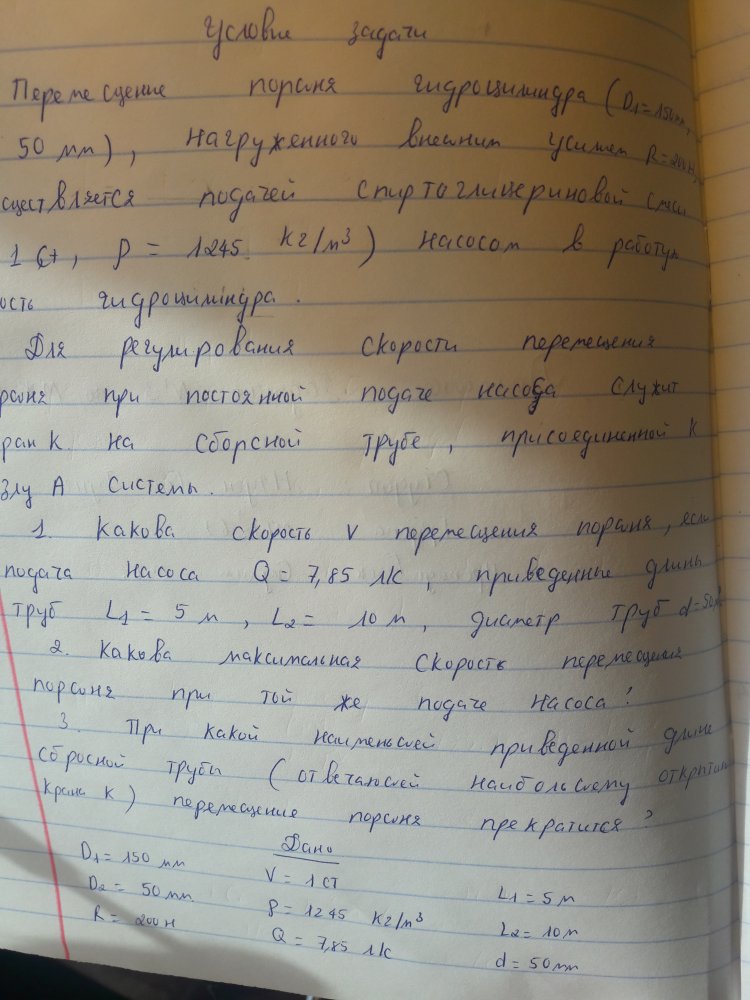 Условие задачи
Перемещение поршня гидроцилиндра (D1=150мм,
50 мм), нагруженного внешним усилием R=200Н,
существляется подачей спиртоглицериновой смеси
1 Ст, ρ = 1245 кг/м³) насосом в рабочую
ость гидроцилиндра.
Для регулирования скорости перемещения
ршня при постоянной подаче насоса служит
ран К на сборсной трубе, присоединенной к
злу А системы.
1. Какова скорость V перемещения поршня, если
подача насоса Q = 7,85 л/с, приведенные длины
труб L1 = 5 м, L2 = 10 м, диаметр труб d=50мм
2. Какова максимальная скорость перемещения
поршня при той же подаче насоса?
3. При какой наименьшей приведенной длине
сбросной трубы (отвечающей наибольшему открытию
крана К) перемещение поршня прекратится?
Дано
D1 = 150 мм V = 1 ст L1 = 5 м
D2 = 50 мм ρ = 1245 кг/м³ L2 = 10 м
R = 200 Н Q = 7,85 л/с d = 50 мм